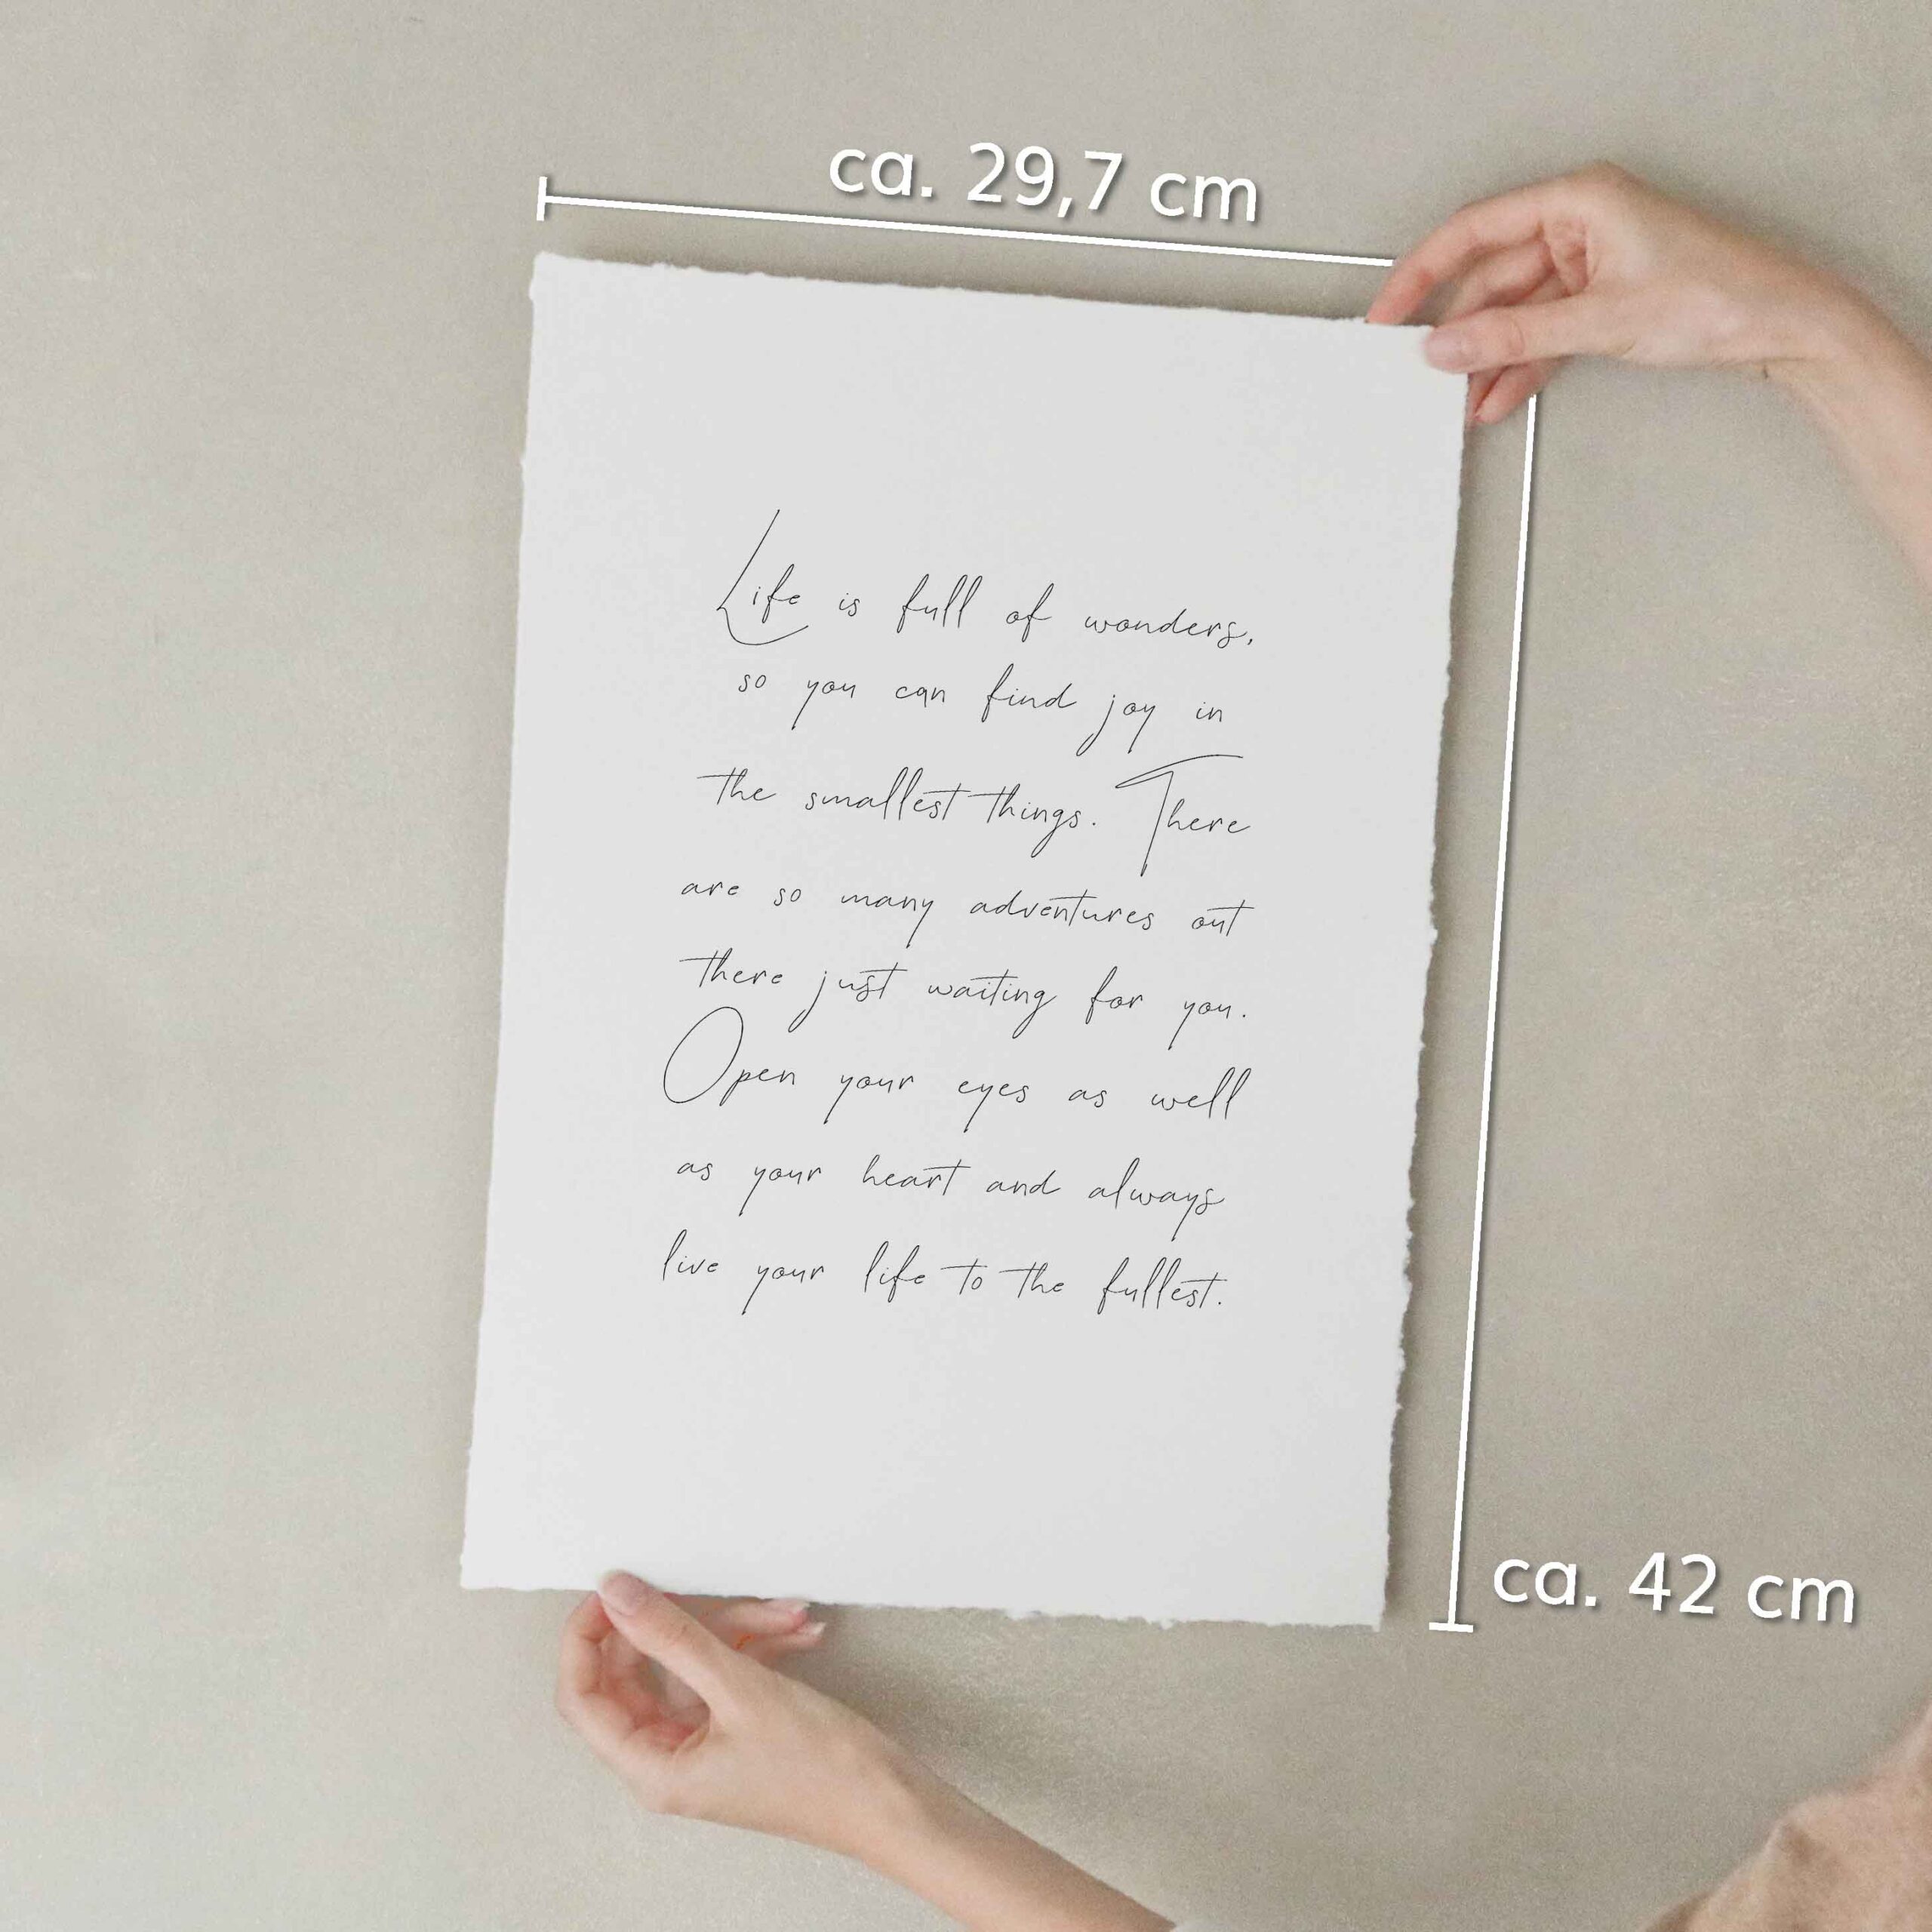 ca. 29,7 cm
Life is full of wonders,
so you can find joy in
the smallest things. There
are so many adventures out
there just waiting for you.
Open your eyes as well
as your heart and always
live your life to the fullest.
ca. 42 cm